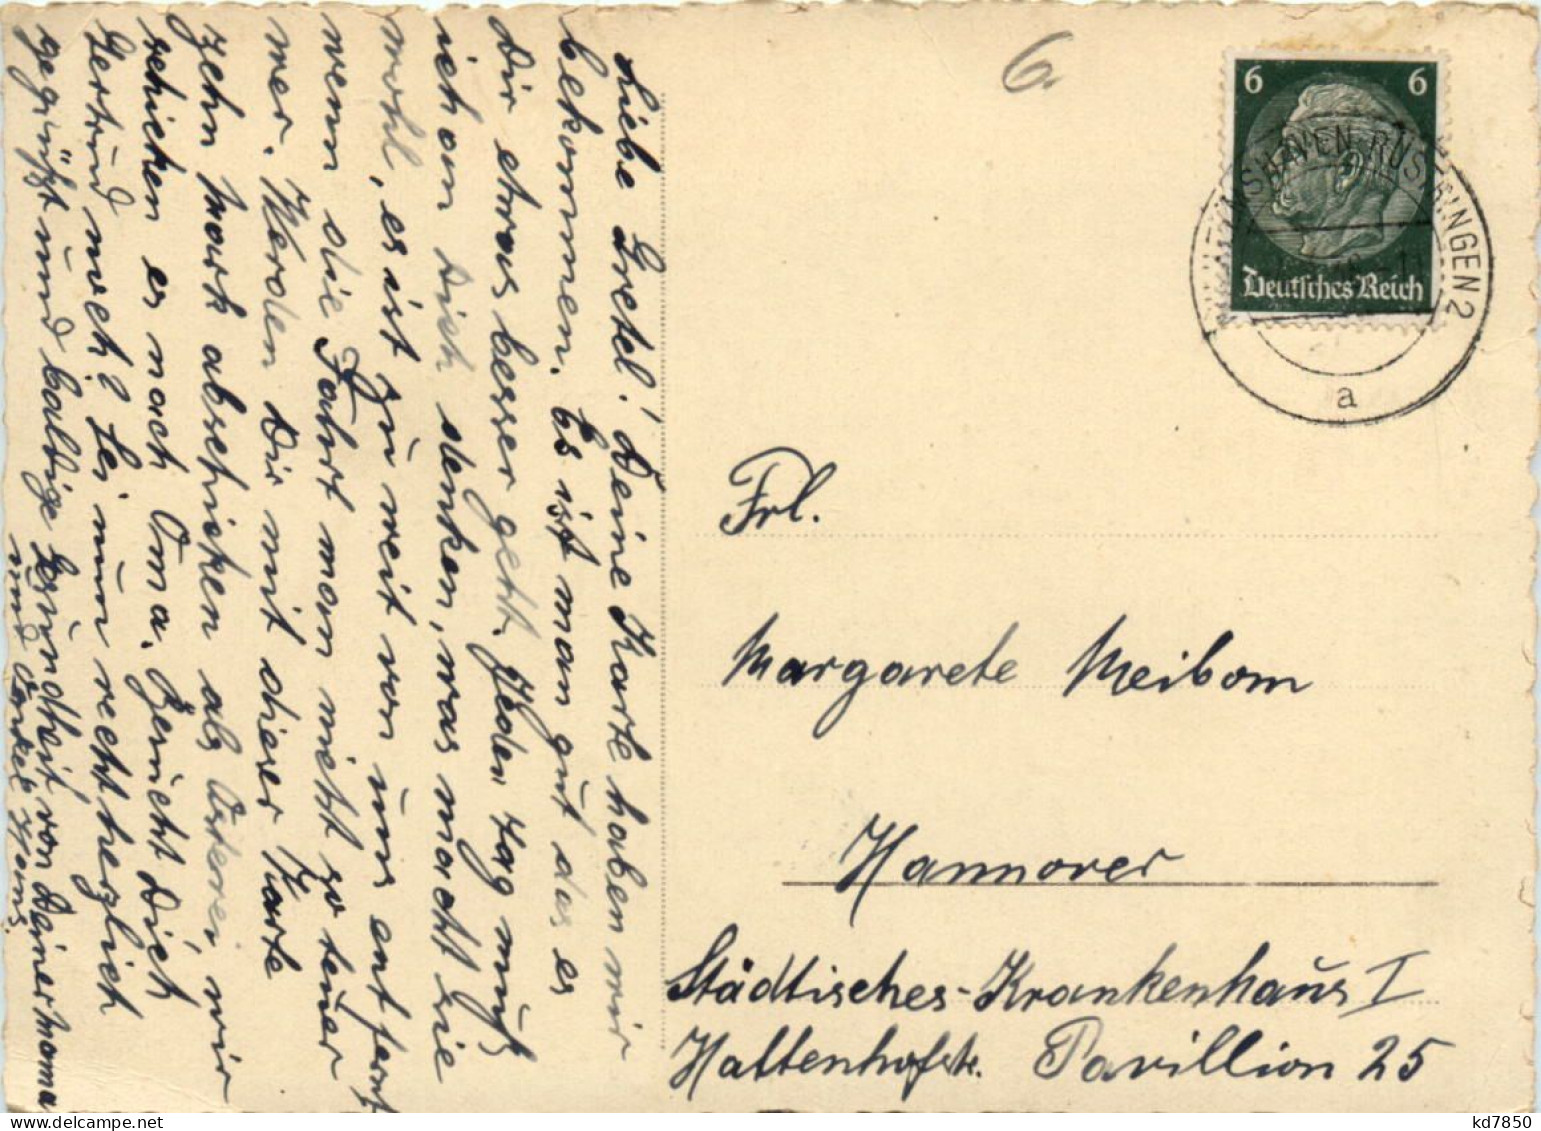 Liebe Gretel! Deine Karte haben wir
bekommen. Es ist man gut das es
Dir etwas besser geht. Jeden Tag muß
ich an Dich denken, was macht sie
wohl, es ist zu weit von uns entfernt
wenn die Fahrt man nicht so teuer
wer. Werden Dir mit dieser Karte
zehn Mark abschicken als Osterei, wir
schicken es nach Oma. Besucht Dich
Gertrud noch? Sei nun recht herzlich
gegrüßt und baldige Gesundheit von Deiner Mama
und Onkel Hans.
6.
6 6
Deutsches Reich
WILHELMSHAVEN-RÜSTRINGEN 2
a
Frl.
Margarete Meibom
Hannover
Städtisches-Krankenhaus I
Haltenhofstr. Pavillion 25
kd7850